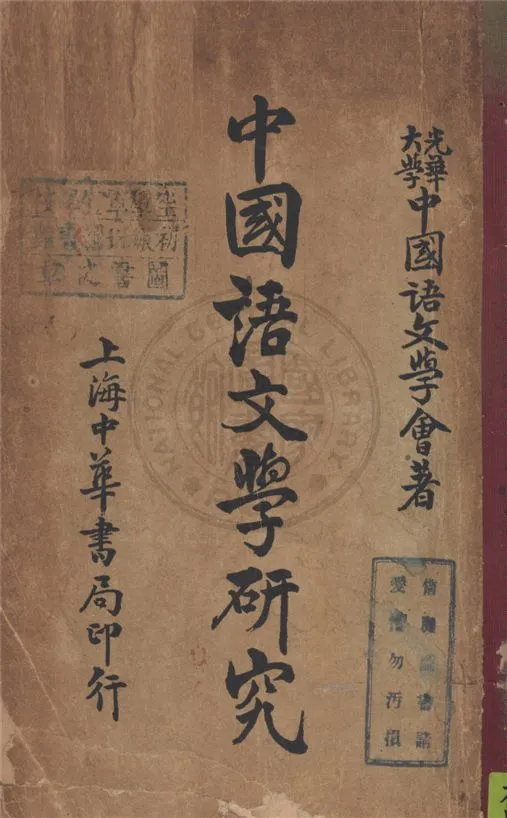 光華
大學
中國語文學會著
中國語文學研究
上海中華書局印行
圖書之章
借閱圖書請
愛惜勿污損
NATIONAL CENTRAL LIBRARY